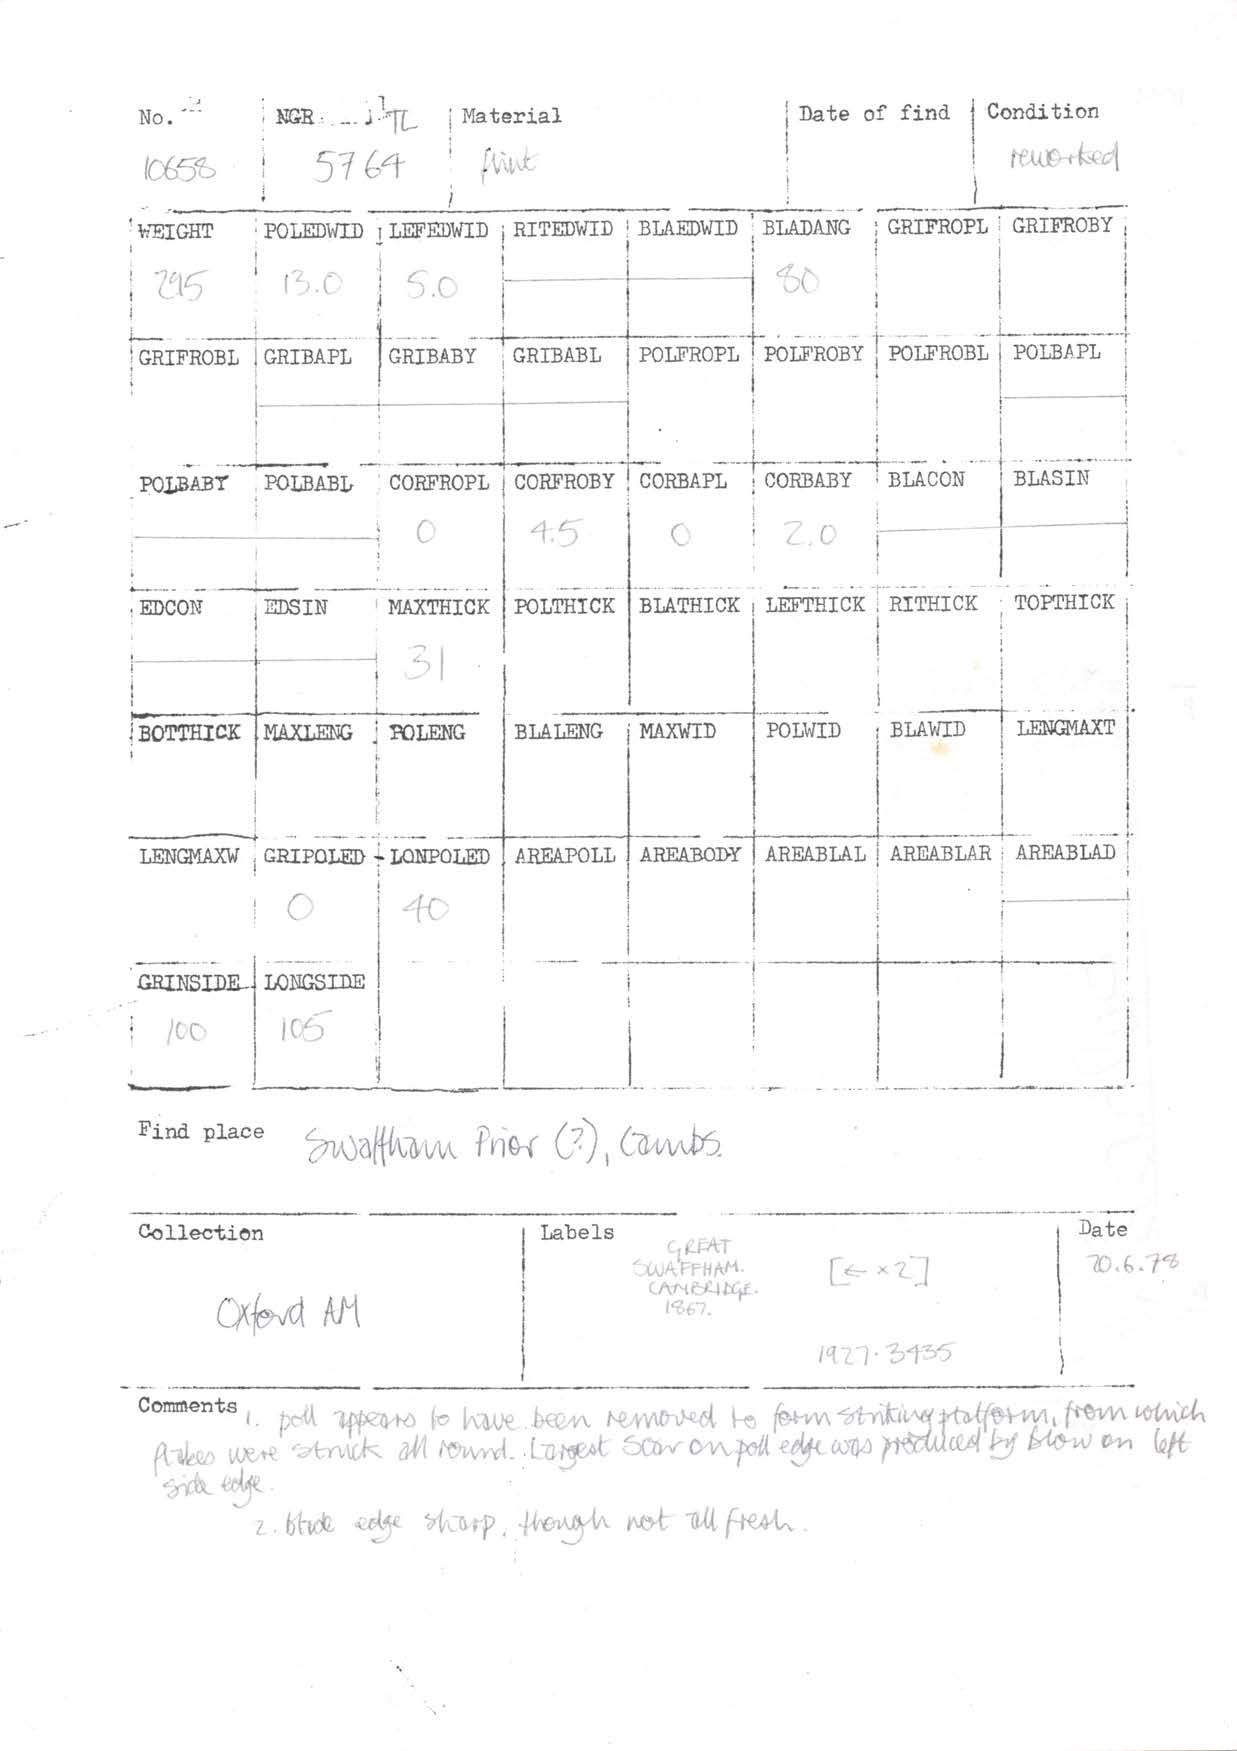 No. NGR TL Material Date of find Condition
10658 5764 flint reworked
WEIGHT POLEDWID LEFEDWID RITEDWID BLAEDWID BLADANG GRIFROPL GRIFROBY
295 13.0 5.0 80
GRIFROBL GRIBAPL GRIBABY GRIBABL POLFROPL POLFROBY POLFROBL POLBAPL
POLBABY POLBABL CORFROPL CORFROBY CORBAPL CORBABY BLACON BLASIN
0 4.5 0 2.0
EDCON EDSIN MAXTHICK POLTHICK BLATHICK LEFTHICK RITHICK TOPTHICK
31
BOTTHICK MAXLENG POLENG BLALENG MAXWID POLWID BLAWID LENGMAXT
LENGMAXW GRIPOLED LONPOLED AREAPOLL AREABODY AREABLAL AREABLAR AREABLAD
0 40
GRINSIDE LONGSIDE
100 105
Find place Swaffham Prior (?), Cambs.
Collection Labels Date
Oxford AM
GREAT
SWAFFHAM.
CAMBRIDGE.
1867.
[← × 2]
1927.3435
20.6.78
Comments 1. poll appears to have been removed to form striking platform, from which
flakes were struck all round. Largest scar on poll edge was produced by blow on left
side edge.
2. blade edge sharp, though not all fresh.